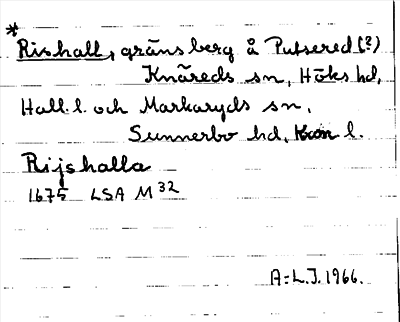 *
Rishall, gränsberg å Putsered (?)
Knäreds sn, Höks hd,
Hall. l. och Markaryds sn,
Sunnerbo hd, Kron l.
Rijshalla
1675 LSA M 32
A:L.J. 1966.